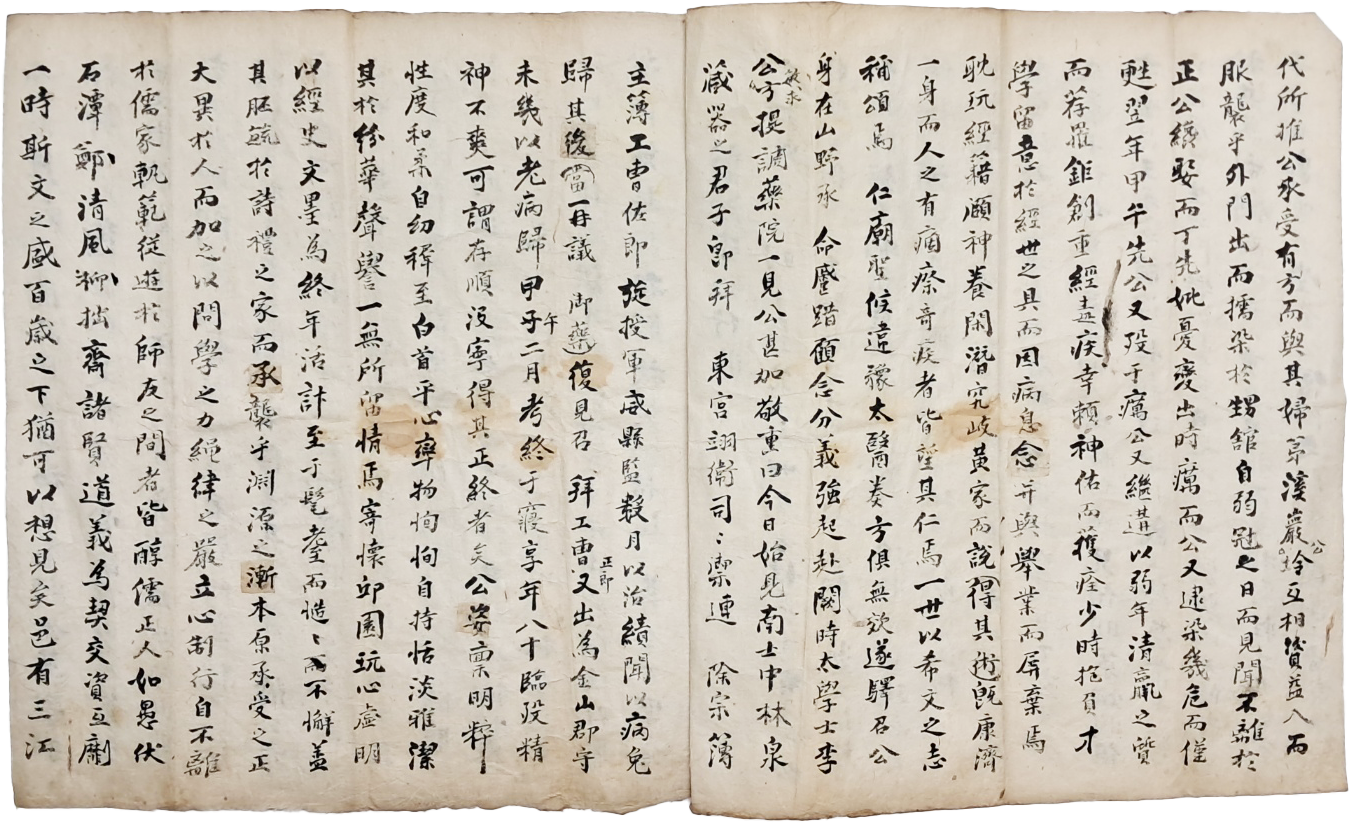 代所推公承受有方而與其婦弟淩巖公坽互相資益入而
服襲乎外門出而擩染於甥舘自弱冠之日而見聞不離於
正公纔娶而丁先妣憂變出時癘而公又逮染幾危而僅
甦翌年甲午先公又歿于癘公又繼遘以弱年清羸之質
而荐罹鉅創重經盡疾幸賴神佑而獲痊少時抱負才
學留意於經世之具而因病息念并與舉業而屏棄焉
耽玩經籍頤神養閑潛究岐黃家而說得其術旣康濟
一身而人之有痼瘵奇疾者皆望其仁焉一世以希文之志
稱頌焉 仁廟聖候違豫太醫奏方俱無效遂驛召公
身在山野承 命蹙踖顧念分義強起赴闕時太學士李
公敬永方提調藥院一見公甚加敬重曰今日始見南士中林泉
藏器之君子卽拜 東宮翊衛司禦連 除宗簿
主簿工曹佐郎旋授軍威縣監數月以治績聞以病免
歸其後當再議 御藥復見召 拜工曹正郎又出為金山郡守
未幾以老病歸甲午二月考終于寢享年八十臨歿精
神不爽可謂存順沒寧得其正終者矣公姿稟明粹
性度和柔自幼穉至白首平心率物恂恂自持恬淡雅潔
其於紛華聲譽一無所留情焉寄懷邱園玩心虛明
以經史文墨為終年活計至于髦耋而慥慥而不懈蓋
其胚毓於詩禮之家而承襲乎淵源之漸本原承受之正
大異於人而加之以問學之力繩律之嚴立心制行自不離
於儒家軌範從遊於師友之間者皆醇儒正人如愚伏
石潭鄭清風柳拙齋諸賢道義為契交資互劘
一時斯文之盛百歲之下猶可以想見矣邑有三江